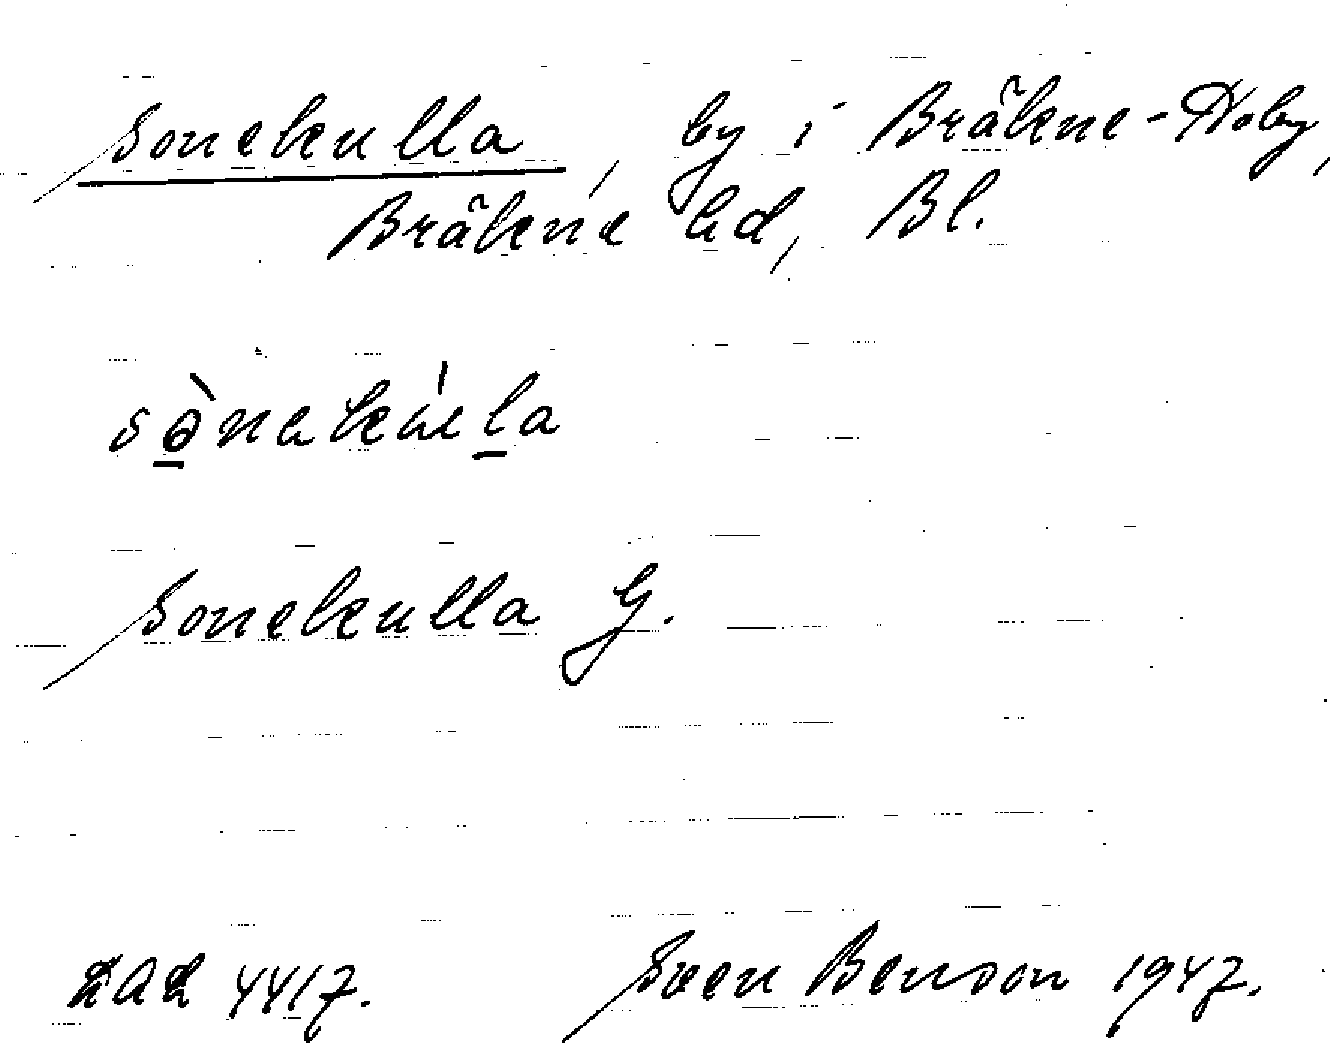 Sonekulla, by i Bräkne-Hoby,
Bräkne hd, Bl.
Sonekulla G.
LAL 4417. Sven Benson 1947.